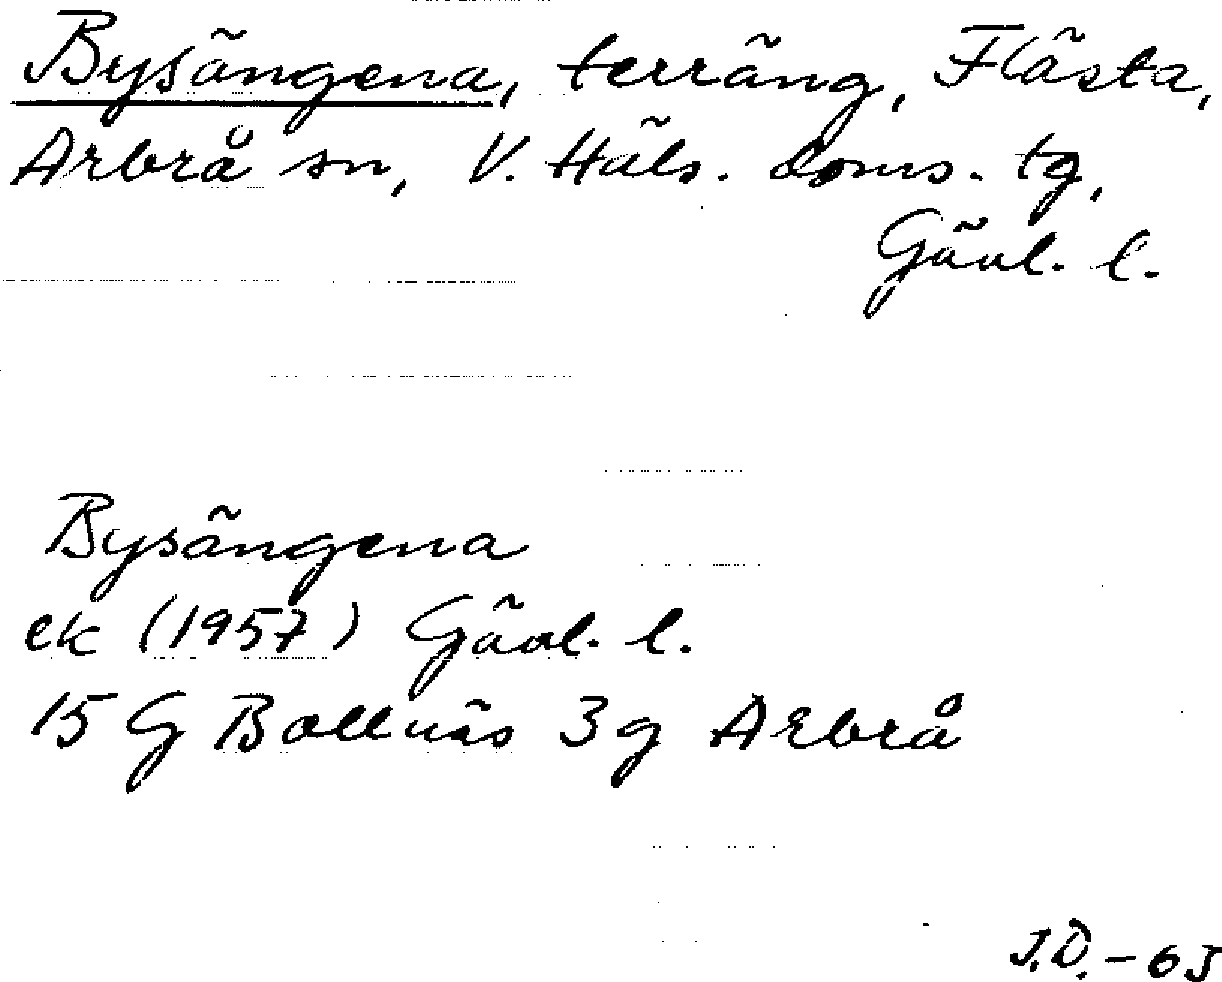 Bysängena, terräng, Flästa,
Arbrå sn, V. Häls. doms. tg,
Gävl. l.
Bysängena
ek (1957) Gävl. l.
15 G Bollnäs 3g Arbrå
J.D.-65